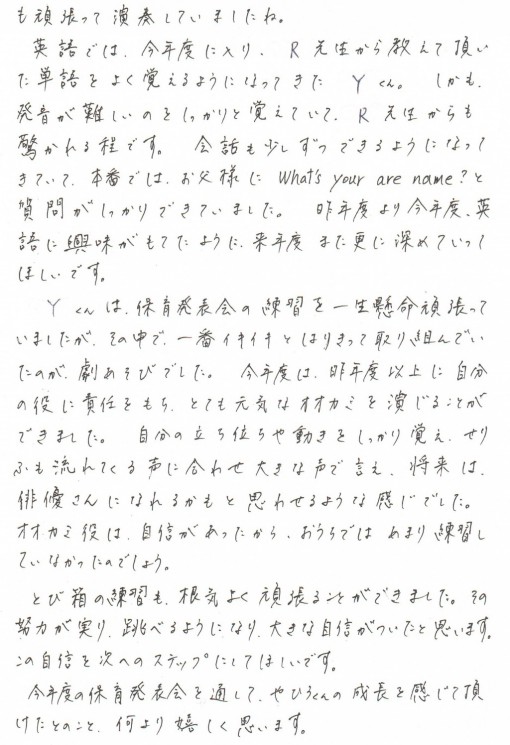 も頑張って演奏していましたね。
英語では、今年度に入り、R先生から教えて頂い
た単語をよく覚えるようになってきたYくん。しかも、
発音が難しいのをしっかりと覚えていて、R先生からも
驚かれる程です。会話も少しずつできるようになって
きていて、本番では、お父様にWhat's your are name?と
質問がしっかりできていました。昨年度より今年度、英
語に興味がもてたように、来年度また更に深めていって
ほしいです。
Yくんは、保育発表会の練習を一生懸命頑張って
いましたが、その中で、一番イキイキとはりきって取り組んでい
たのが、劇あそびでした。今年度は、昨年度以上に自分
の役に責任をもち、とても元気なオオカミを演じることが
できました。自分の立ち位ちや動きをしっかり覚え、せり
ふも流れてくる声に合わせ大きな声で言え、将来は、
俳優さんになれるかもと思わせるような感じでした。
オオカミ役は、自信があったから、おうちではあまり練習し
ていなかったのでしょう。
とび箱の練習も、根気よく頑張ることができました。その
努力が実り、跳べるようになり、大きな自信がついたと思います。
この自信を次へのステップにしてほしいです。
今年度の保育発表会を通して、やひろくんの成長を感じて頂
けたとのこと、何より嬉しく思います。